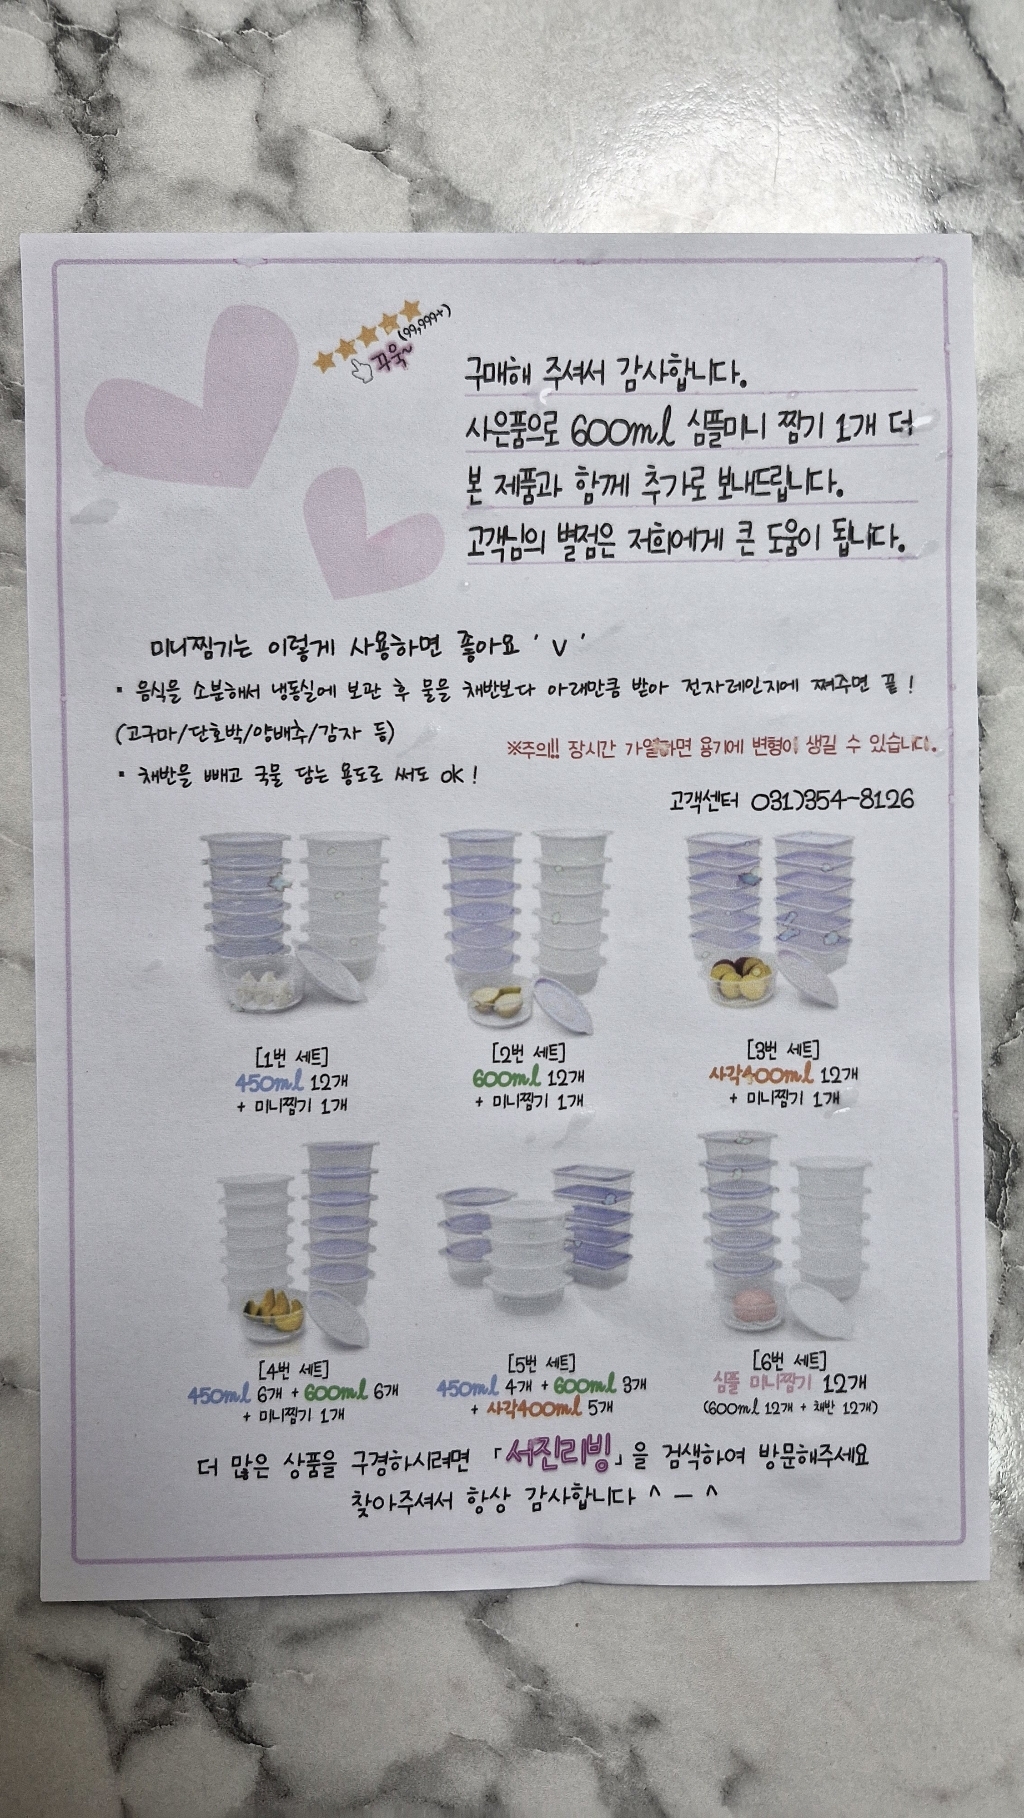 (99,999+)
꾸욱~
구매해 주셔서 감사합니다.
사은품으로 600ml 심플미니 찜기 1개 더
본 제품과 함께 추가로 보내드립니다.
고객님의 별점은 저희에게 큰 도움이 됩니다.
미니찜기는 이렇게 사용하면 좋아요 ' v '
▪ 음식을 소분해서 냉동실에 보관 후 물을 채반보다 아래만큼 받아 전자레인지에 쪄주면 끝 !
(고구마/단호박/양배추/감자 등)
※주의!! 장시간 가열하면 용기에 변형이 생길 수 있습니다.
▪ 채반을 빼고 국물 담는 용도로 써도 ok !
고객센터 031)354-8126
[1번 세트]
450ml 12개
+ 미니찜기 1개
[2번 세트]
600ml 12개
+ 미니찜기 1개
[3번 세트]
사각400ml 12개
+ 미니찜기 1개
[4번 세트]
450ml 6개 + 600ml 6개
+ 미니찜기 1개
[5번 세트]
450ml 4개 + 600ml 3개
+ 사각400ml 5개
[6번 세트]
심플 미니찜기 12개
(600ml 12개 + 채반 12개)
더 많은 상품을 구경하시려면 「서진리빙」을 검색하여 방문해주세요
찾아주셔서 항상 감사합니다 ^ - ^